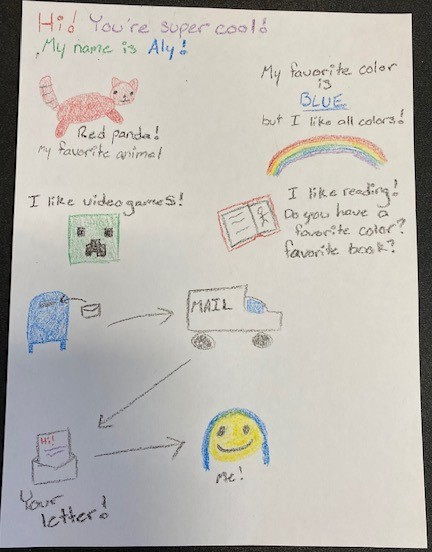 Hi! You're super cool!
My name is Aly!
My favorite color
is
BLUE
but I like all colors!
Red panda!
my favorite animal
I like video games!
I like reading!
Do you have a
favorite color?
favorite book?
MAIL
Hi!
Your
letter!
Me!